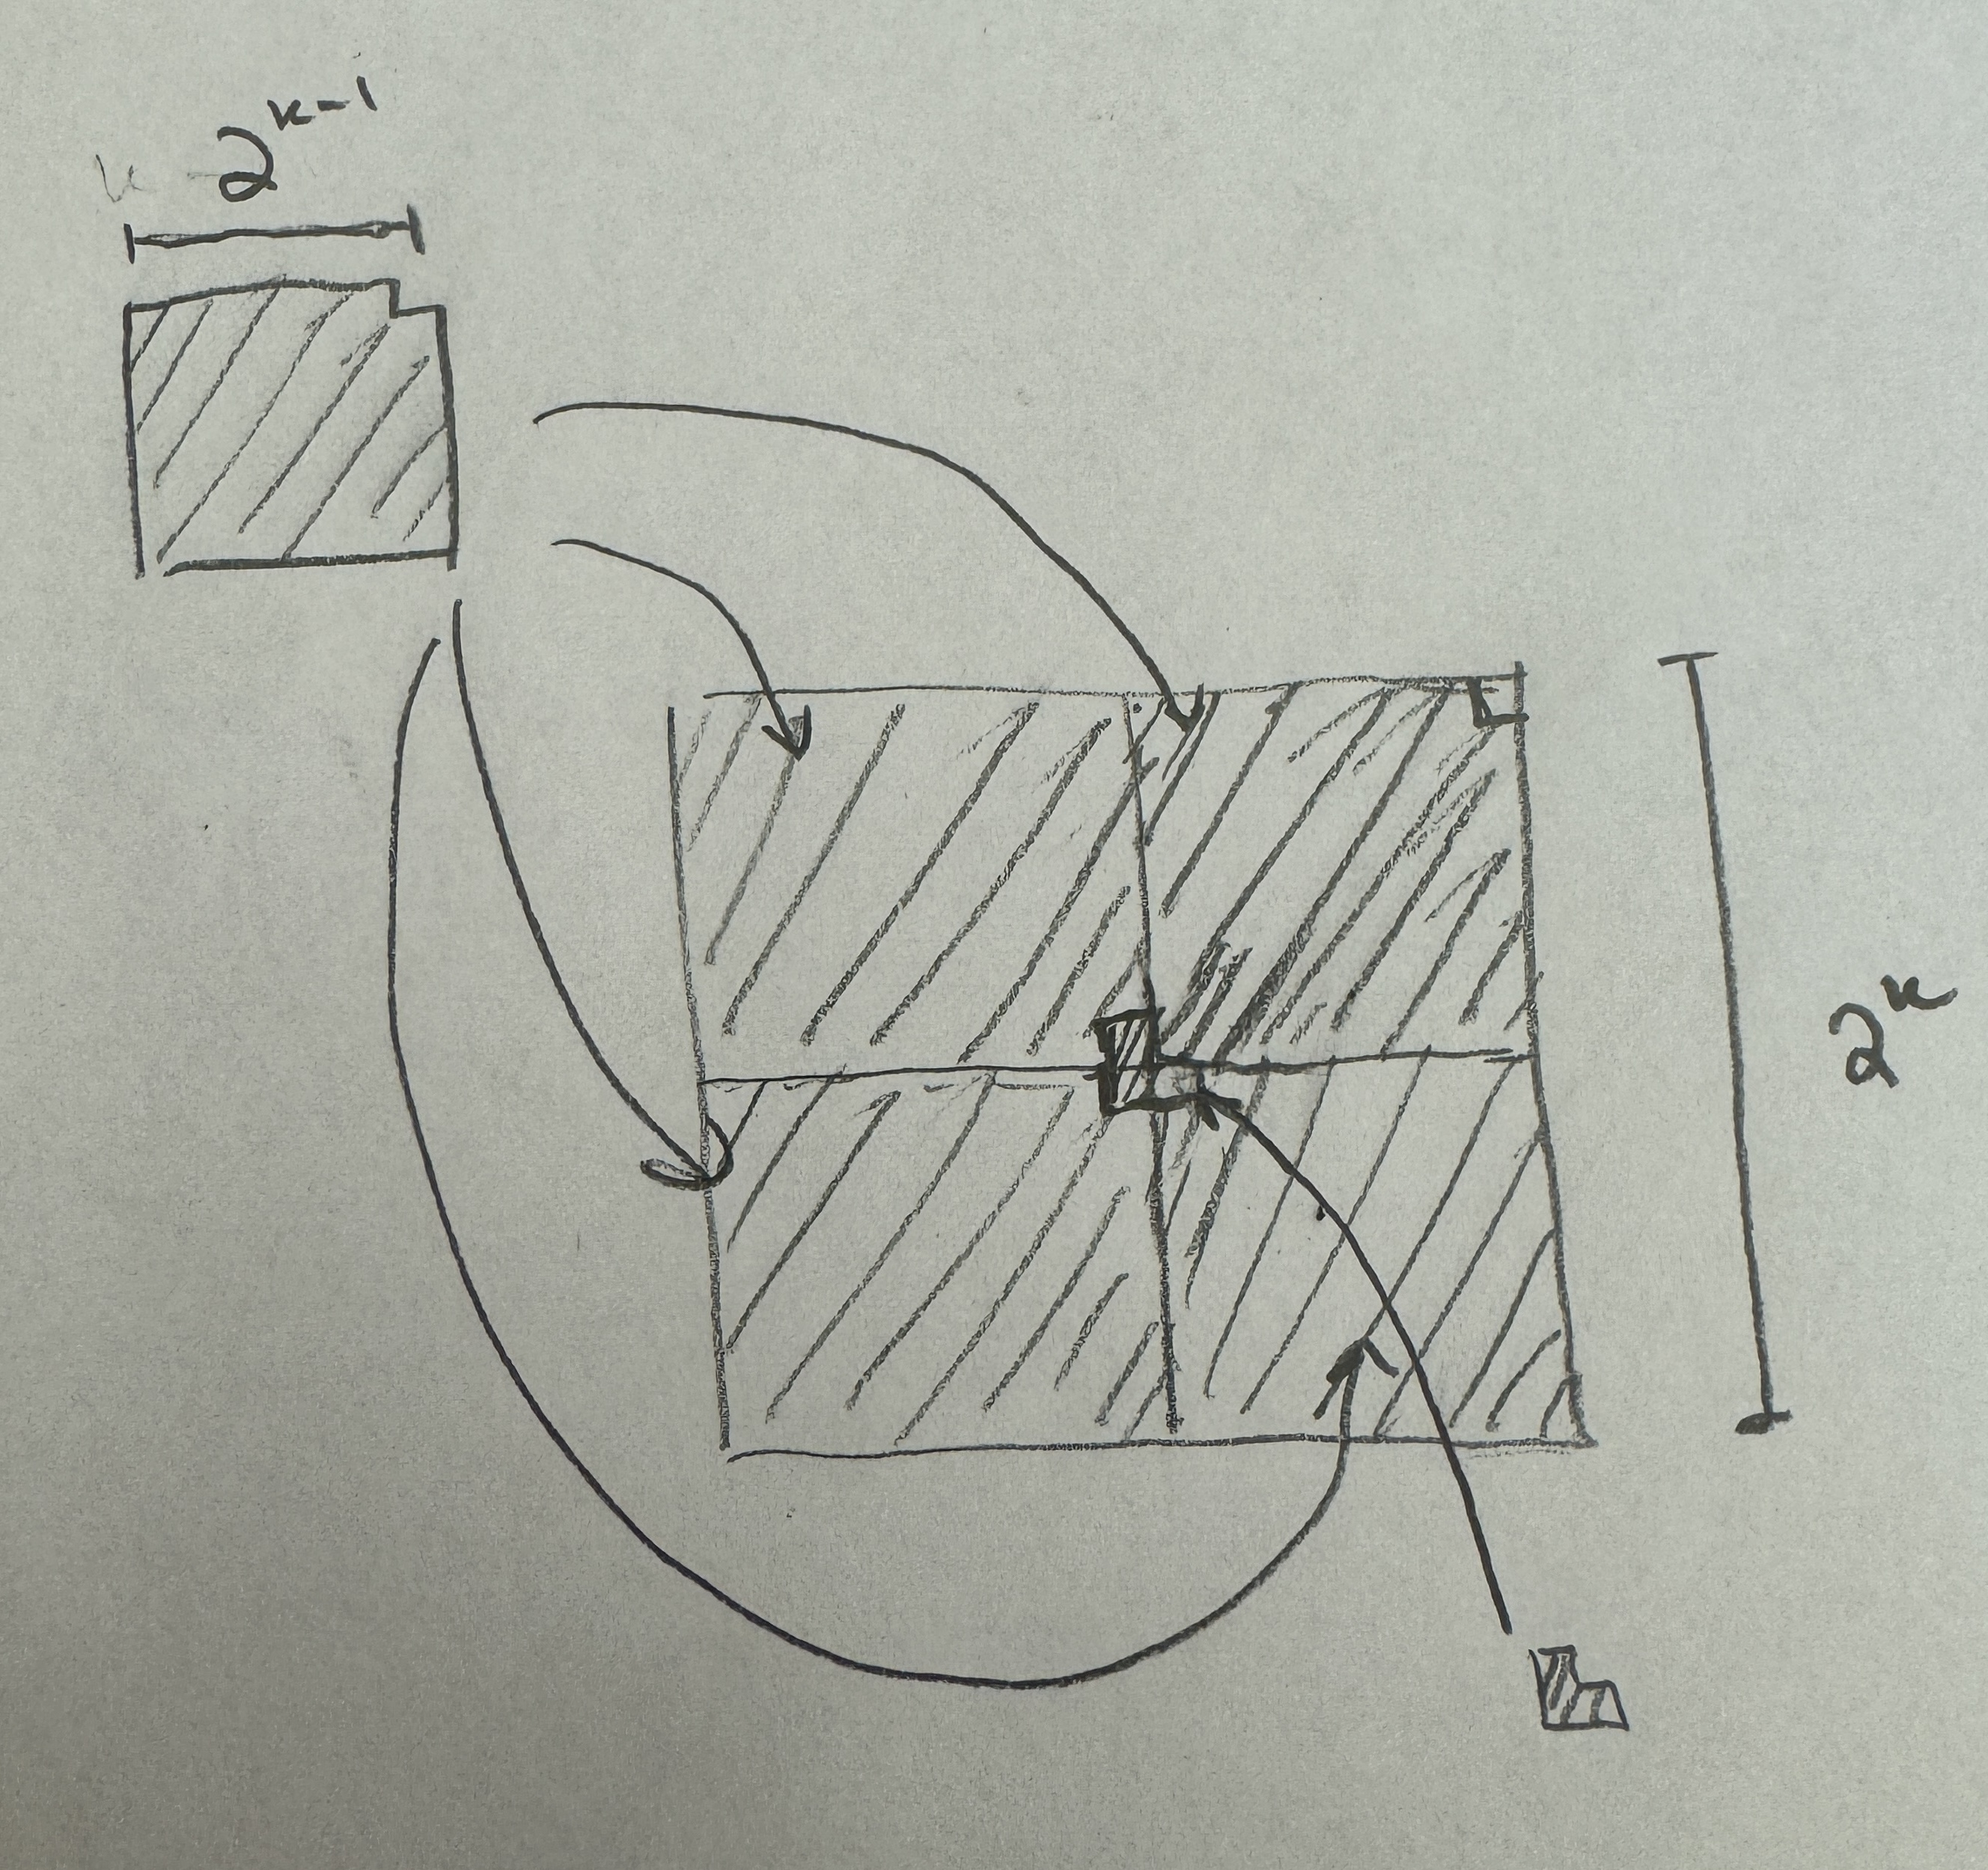 2^{k-1}
2^k